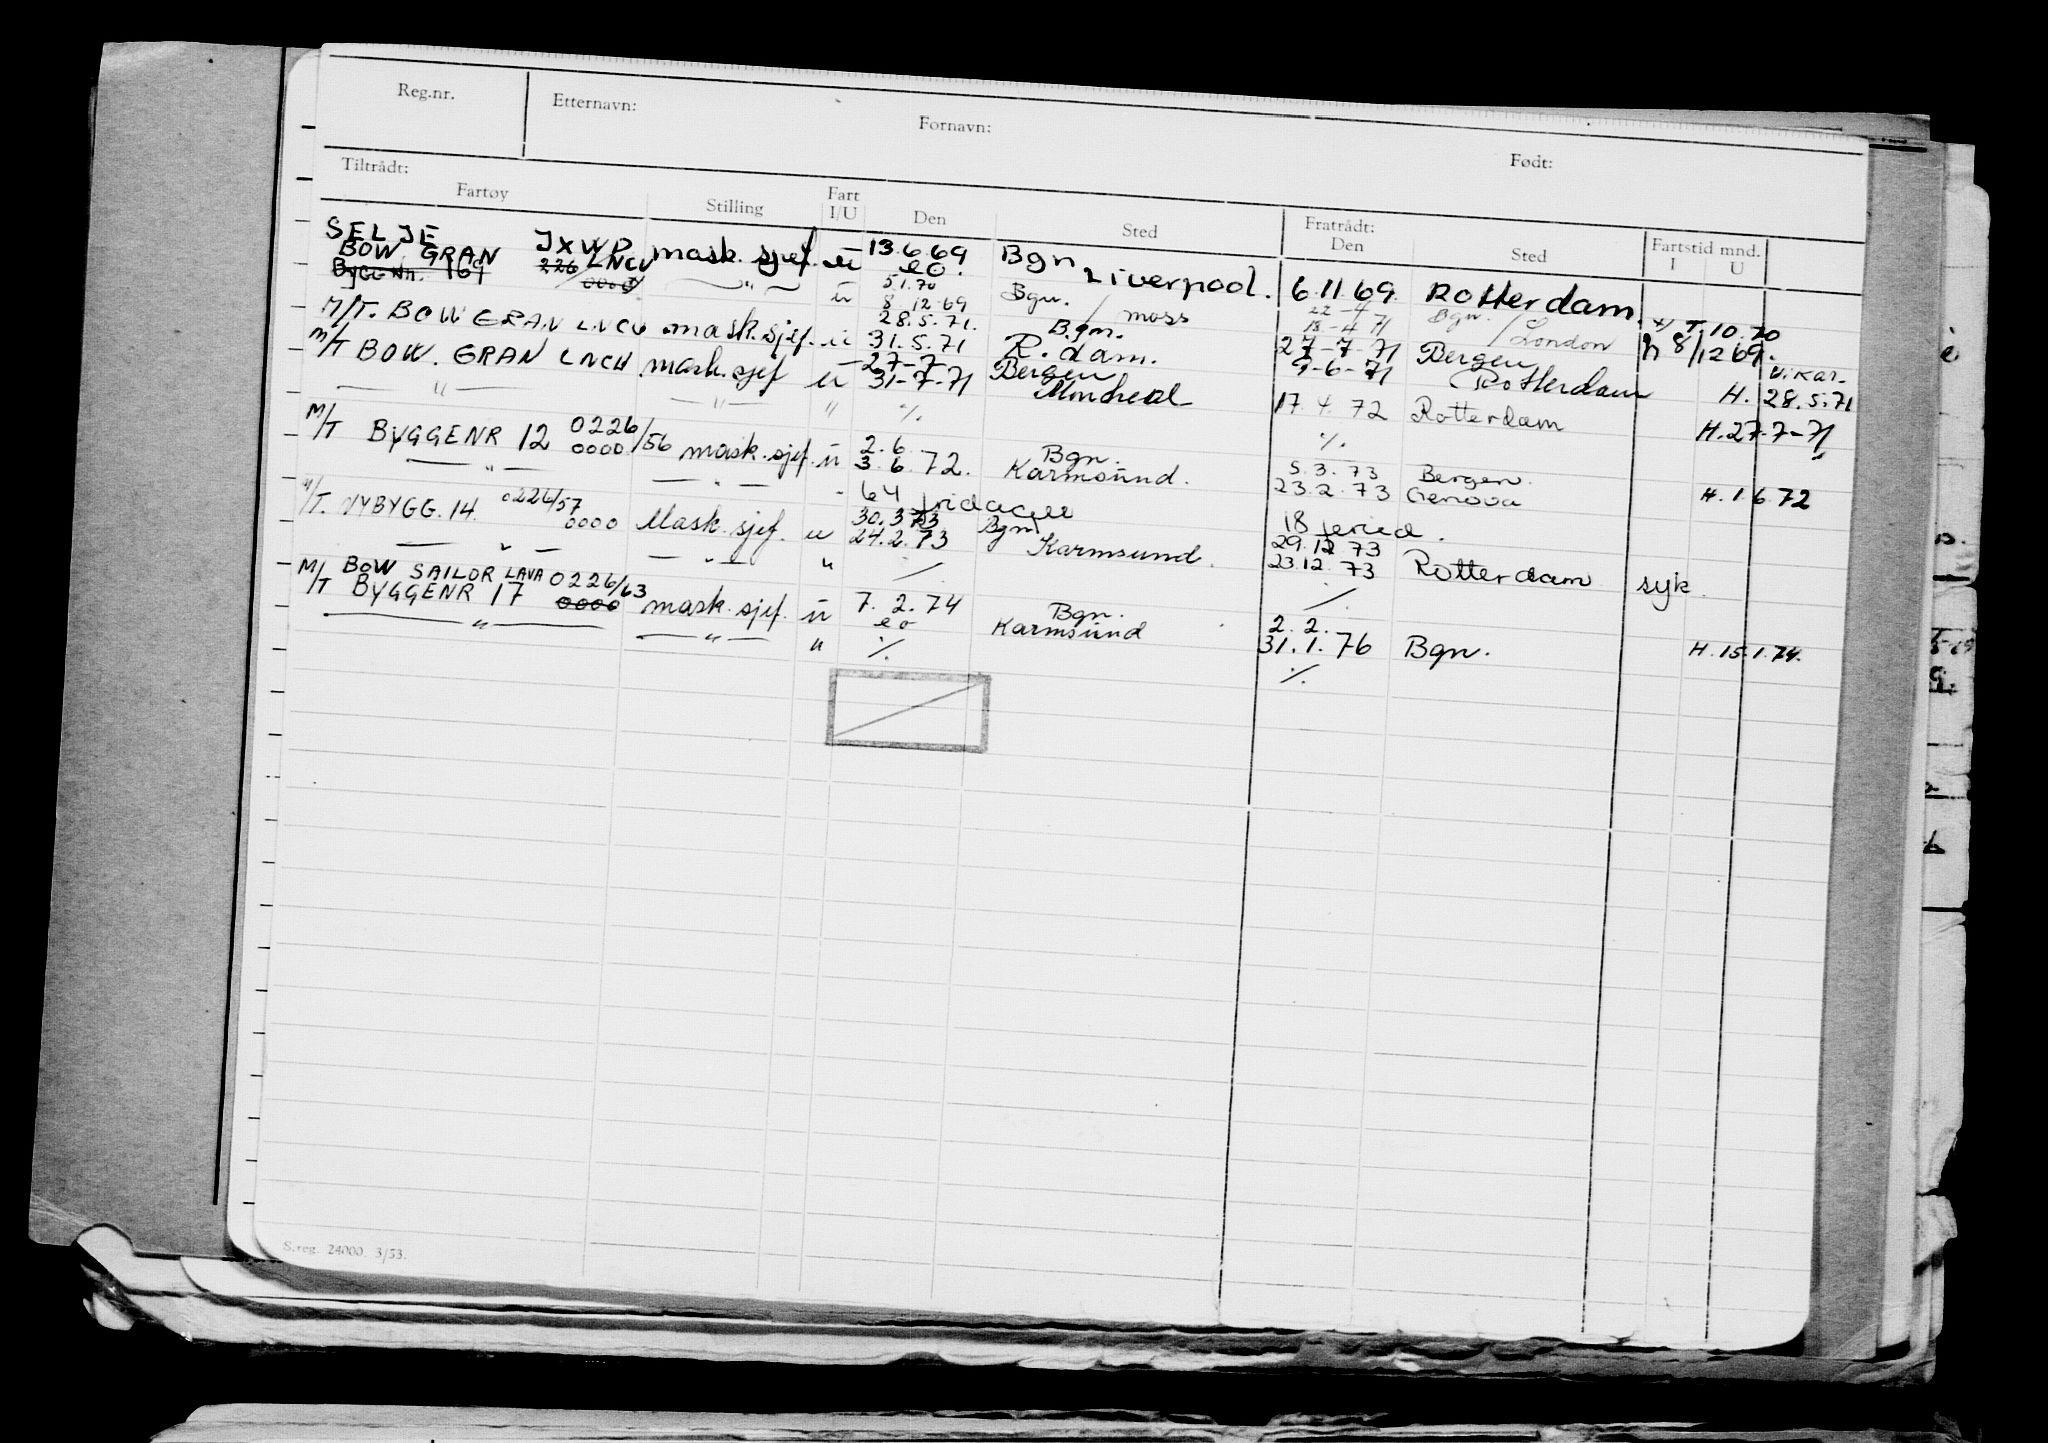 Reg.nr. Etternavn: Fornavn: Født:
Tiltrådt: Fratrådt:
Fartøy Stilling Fart I/U Den Sted Den Sted Fartstid mnd. I U
SELJE JXWD mask. sjef. u 13.6.69 Bgn 6.11.69 Rotterdam
BOW GRAN LNCU eo. Liverpool.
BYGG NR. 169 226/0000 — " — u 5.1.70 Bgn. / moss 22-4 Bgn. / London T. 10.70
8.12.69 18-4 71 h 8/12 69.
M/T. BOW GRAN LNCU mask. sjef. u 28.5.71. Bgn. 27-7-71 Bergen vikar.
31.5.71 R.dam. 9-6-71 Rotterdam H. 28.5.71
M/T BOW. GRAN LNCU mask. sjef u 27-7- Bergen
31-7-71 Montreal 17.4.72 Rotterdam H. 27.7-71
— " — — " — " ./. ./.
M/T BYGGENR 12 0226/56 0000 mask. sjef. u 2.6. Bgn. 5.3.73 Bergen.
3.6.72. Karmsund. 23.2.73 Genova H. 1.6.72
— " — — " — "
64 fridager 18 feried.
M/T. NYBYGG. 14. 0226/57 0000 Mask. sjef. u 30.3.73 Bgn 29.12.73
24.2.73 Karmsund. 23.12.73 Rotterdam syk.
— " — — " — "
BOW SAILOR LAVA
M/T BYGGENR 17 0226/63 0000 mask. sjef. u 7.2.74 Bgn. 2.2.
eo Karmsund 31.1.76 Bgn. H. 15.1.74.
— " — — " — " ./. ./.
S.reg. 24000. 3/53.